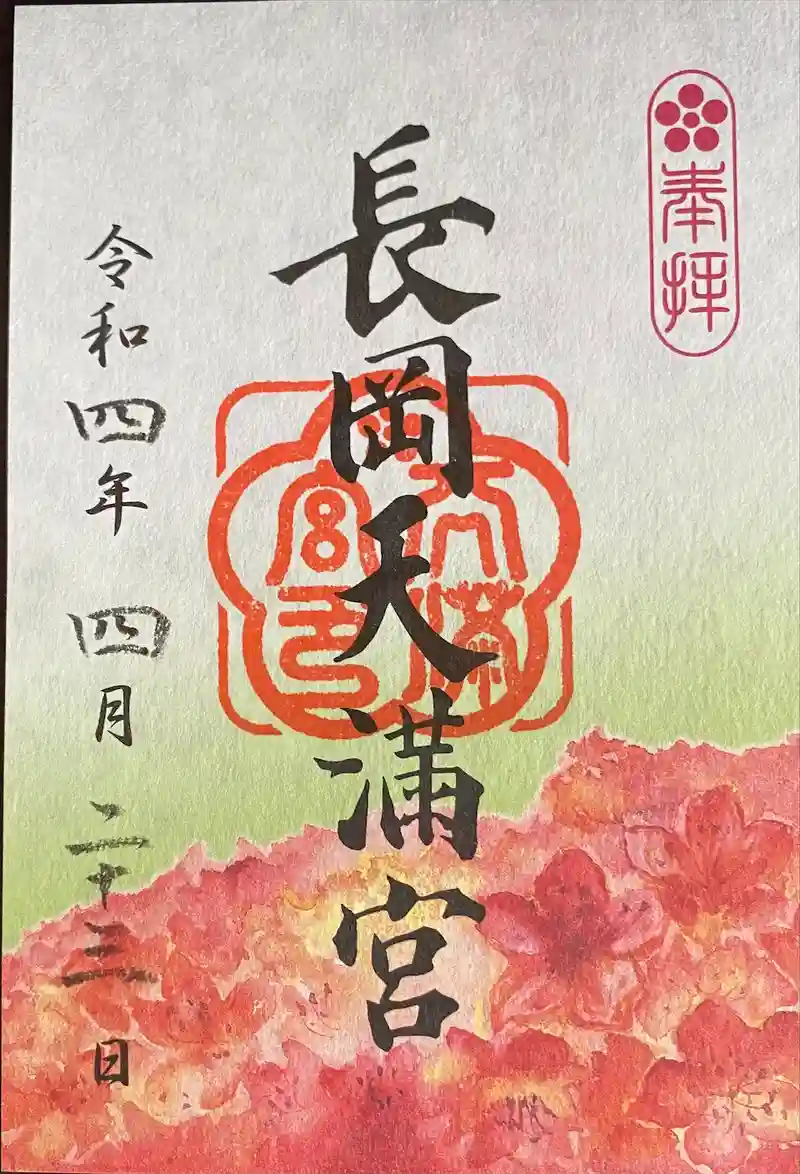 奉拝
長岡天満宮
天満宮印
令和四年 四月 二十三日